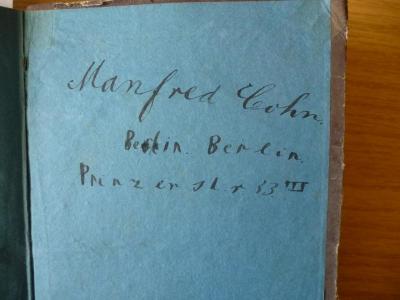 Manfred Cohn.
Berlin. Berlin.
Prinzerstr 33 III